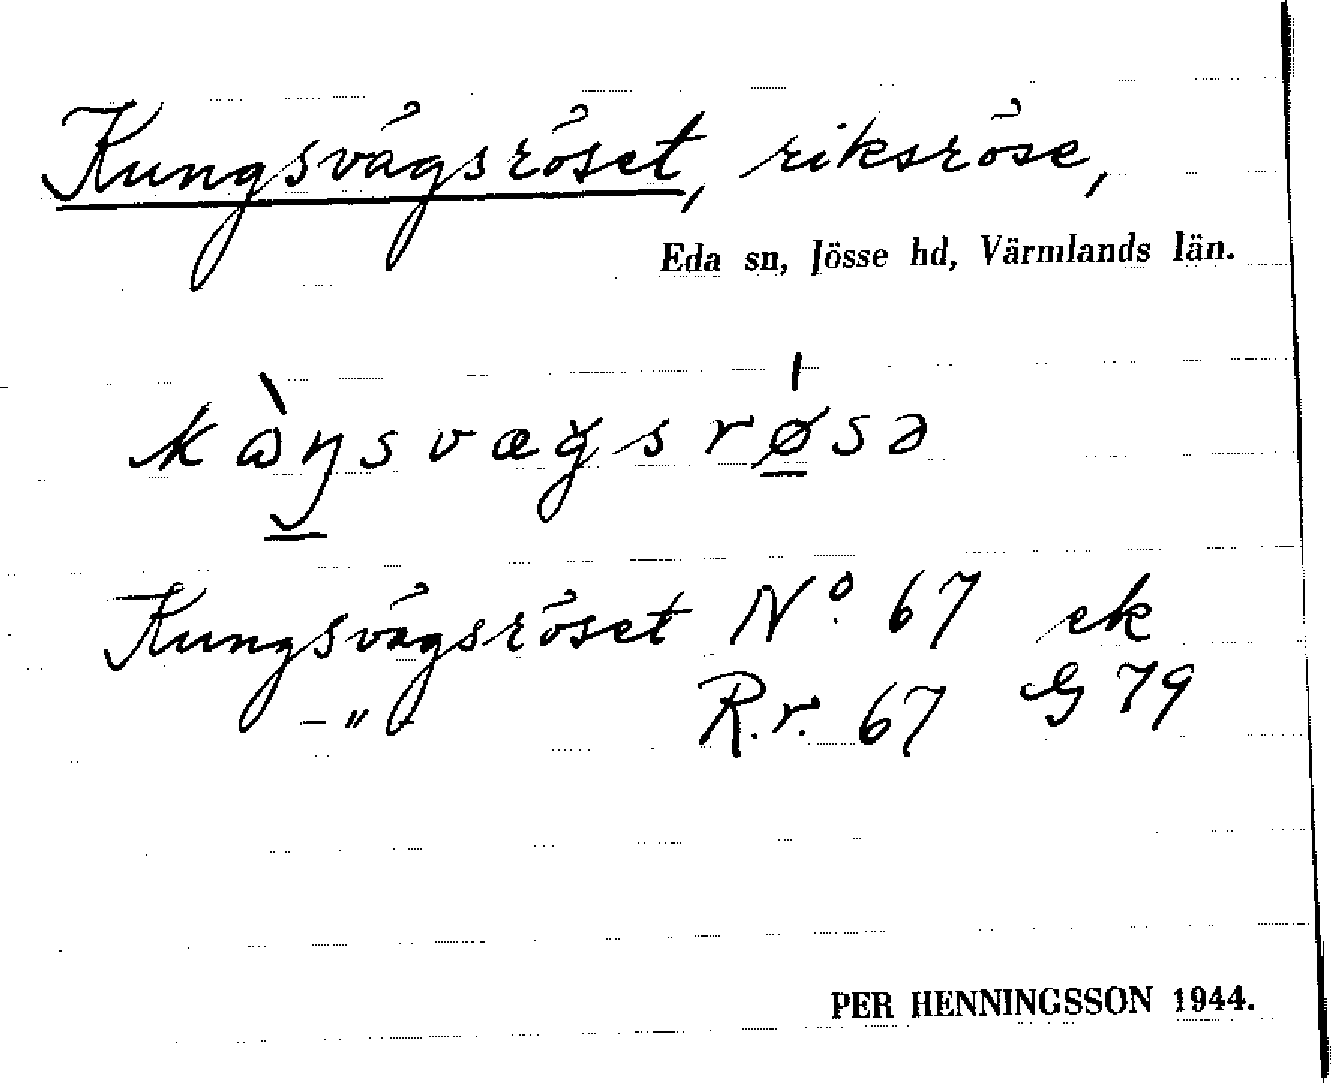 Kungsvägsröset, riksröse,
Eda sn, Jösse hd, Värmlands län.
kὼŋsvægsrø̲sə
Kungsvägsröset No. 67 ek
-„- R.r. 67 G 79
PER HENNINGSSON 1944.